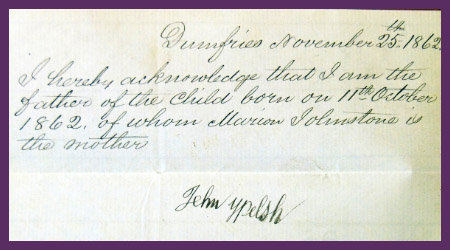 Dumfries November 25th 1862.
I hereby acknowledge that I am the
father of the child born on 11th October
1862. of whom Marion Johnstone is
the mother
John Welsh